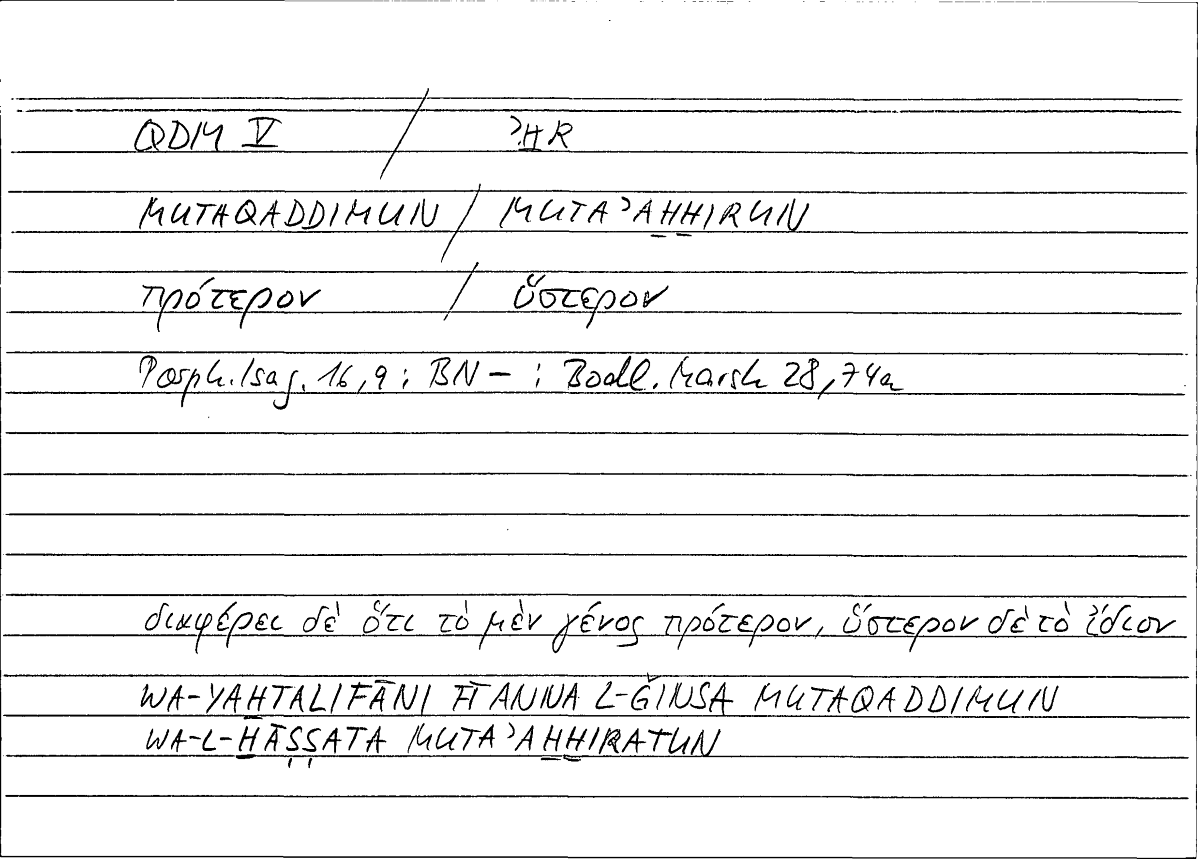 QDM V / ʾH̱R
MUTAQADDIMUN / MUTAʾAH̱H̱IRUN
πρότερον / ὕστερον
Porph. Isag. 16,9 ; BN – ; Bodl. Marsh 28,74a
διαφέρει δὲ ὅτι τὸ μὲν γένος πρότερον, ὕστερον δὲ τὸ ἴδιον
WA-YAH̱TALIFĀNI FĪ ANNA L-ǦINSA MUTAQADDIMUN
WA-L-H̱ĀṢṢATA MUTAʾAH̱H̱IRATUN